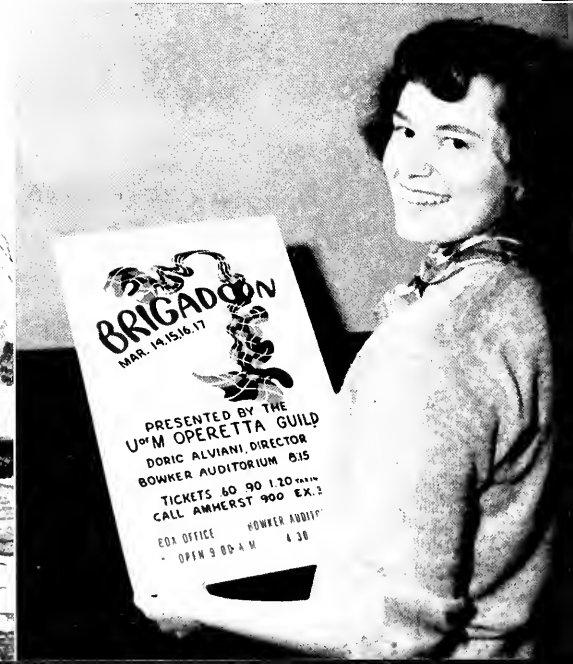 BRIGADOON
MAR. 14,15,16,17
PRESENTED BY THE
U OF M OPERETTA GUILD
DORIC ALVIANI, DIRECTOR
BOWKER AUDITORIUM 8:15
TICKETS .60 .90 1.20
CALL AMHERST 900 EX.
BOX OFFICE BOWKER
OPEN 9 00 A M 4 30